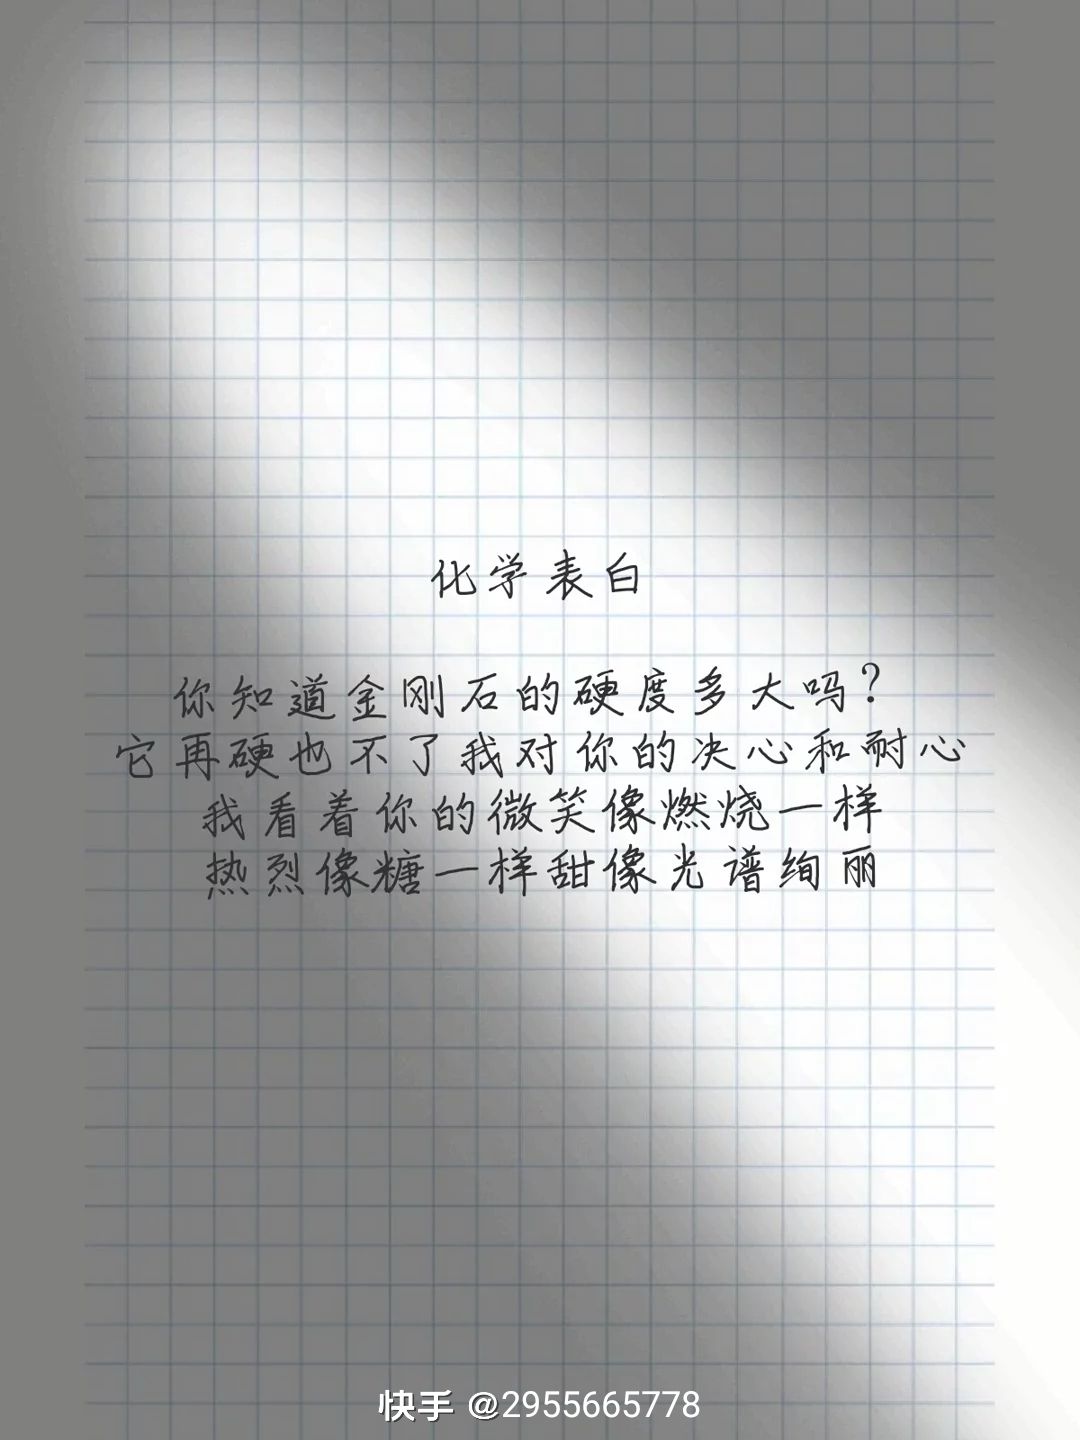 化学表白
你知道金刚石的硬度多大吗?
它再硬也不了我对你的决心和耐心
我看着你的微笑像燃烧一样
热烈像糖一样甜像光谱绚丽
快手 @2955665778